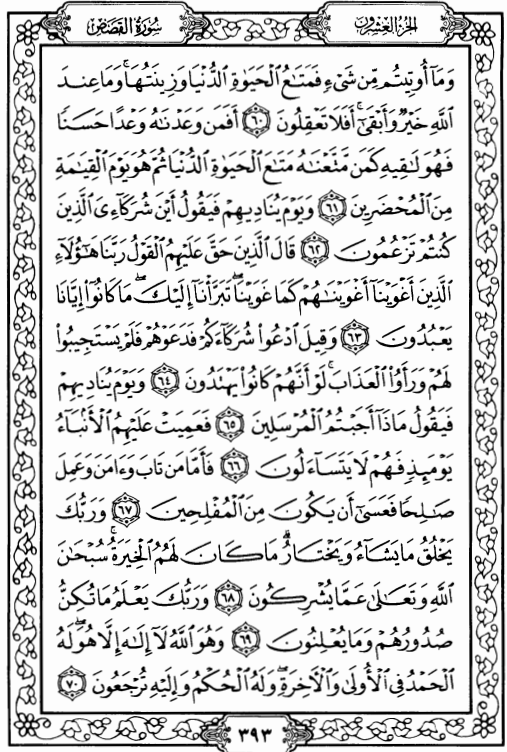 الجزء العشرون
سورة القصص
وَمَا أُوتِيتُم مِّن شَىْءٍ فَمَتَٰعُ الْحَيَوٰةِ الدُّنْيَا وَزِينَتُهَا ۚ وَمَا عِندَ
اللَّهِ خَيْرٌ وَأَبْقَىٰٓ ۚ أَفَلَا تَعْقِلُونَ ٦٠ أَفَمَن وَعَدْنَٰهُ وَعْدًا حَسَنًا
فَهُوَ لَٰقِيهِ كَمَن مَّتَّعْنَٰهُ مَتَٰعَ الْحَيَوٰةِ الدُّنْيَا ثُمَّ هُوَ يَوْمَ الْقِيَٰمَةِ
مِنَ الْمُحْضَرِينَ ٦١ وَيَوْمَ يُنَادِيهِمْ فَيَقُولُ أَيْنَ شُرَكَآءِىَ الَّذِينَ
كُنتُمْ تَزْعُمُونَ ٦٢ قَالَ الَّذِينَ حَقَّ عَلَيْهِمُ الْقَوْلُ رَبَّنَا هَٰٓؤُلَآءِ
الَّذِينَ أَغْوَيْنَآ أَغْوَيْنَٰهُمْ كَمَا غَوَيْنَا ۖ تَبَرَّأْنَآ إِلَيْكَ ۖ مَا كَانُوٓا۟ إِيَّانَا
يَعْبُدُونَ ٦٣ وَقِيلَ ادْعُوا۟ شُرَكَآءَكُمْ فَدَعَوْهُمْ فَلَمْ يَسْتَجِيبُوا۟
لَهُمْ وَرَأَوُا۟ الْعَذَابَ ۚ لَوْ أَنَّهُمْ كَانُوا۟ يَهْتَدُونَ ٦٤ وَيَوْمَ يُنَادِيهِمْ
فَيَقُولُ مَاذَآ أَجَبْتُمُ الْمُرْسَلِينَ ٦٥ فَعَمِيَتْ عَلَيْهِمُ الْأَنۢبَآءُ
يَوْمَئِذٍ فَهُمْ لَا يَتَسَآءَلُونَ ٦٦ فَأَمَّا مَن تَابَ وَءَامَنَ وَعَمِلَ
صَٰلِحًا فَعَسَىٰٓ أَن يَكُونَ مِنَ الْمُفْلِحِينَ ٦٧ وَرَبُّكَ
يَخْلُقُ مَا يَشَآءُ وَيَخْتَارُ ۗ مَا كَانَ لَهُمُ الْخِيَرَةُ ۚ سُبْحَٰنَ
اللَّهِ وَتَعَٰلَىٰ عَمَّا يُشْرِكُونَ ٦٨ وَرَبُّكَ يَعْلَمُ مَا تُكِنُّ
صُدُورُهُمْ وَمَا يُعْلِنُونَ ٦٩ وَهُوَ اللَّهُ لَآ إِلَٰهَ إِلَّا هُوَ ۖ لَهُ
الْحَمْدُ فِى الْأُولَىٰ وَالْءَاخِرَةِ ۖ وَلَهُ الْحُكْمُ وَإِلَيْهِ تُرْجَعُونَ ٧٠
٣٩٣